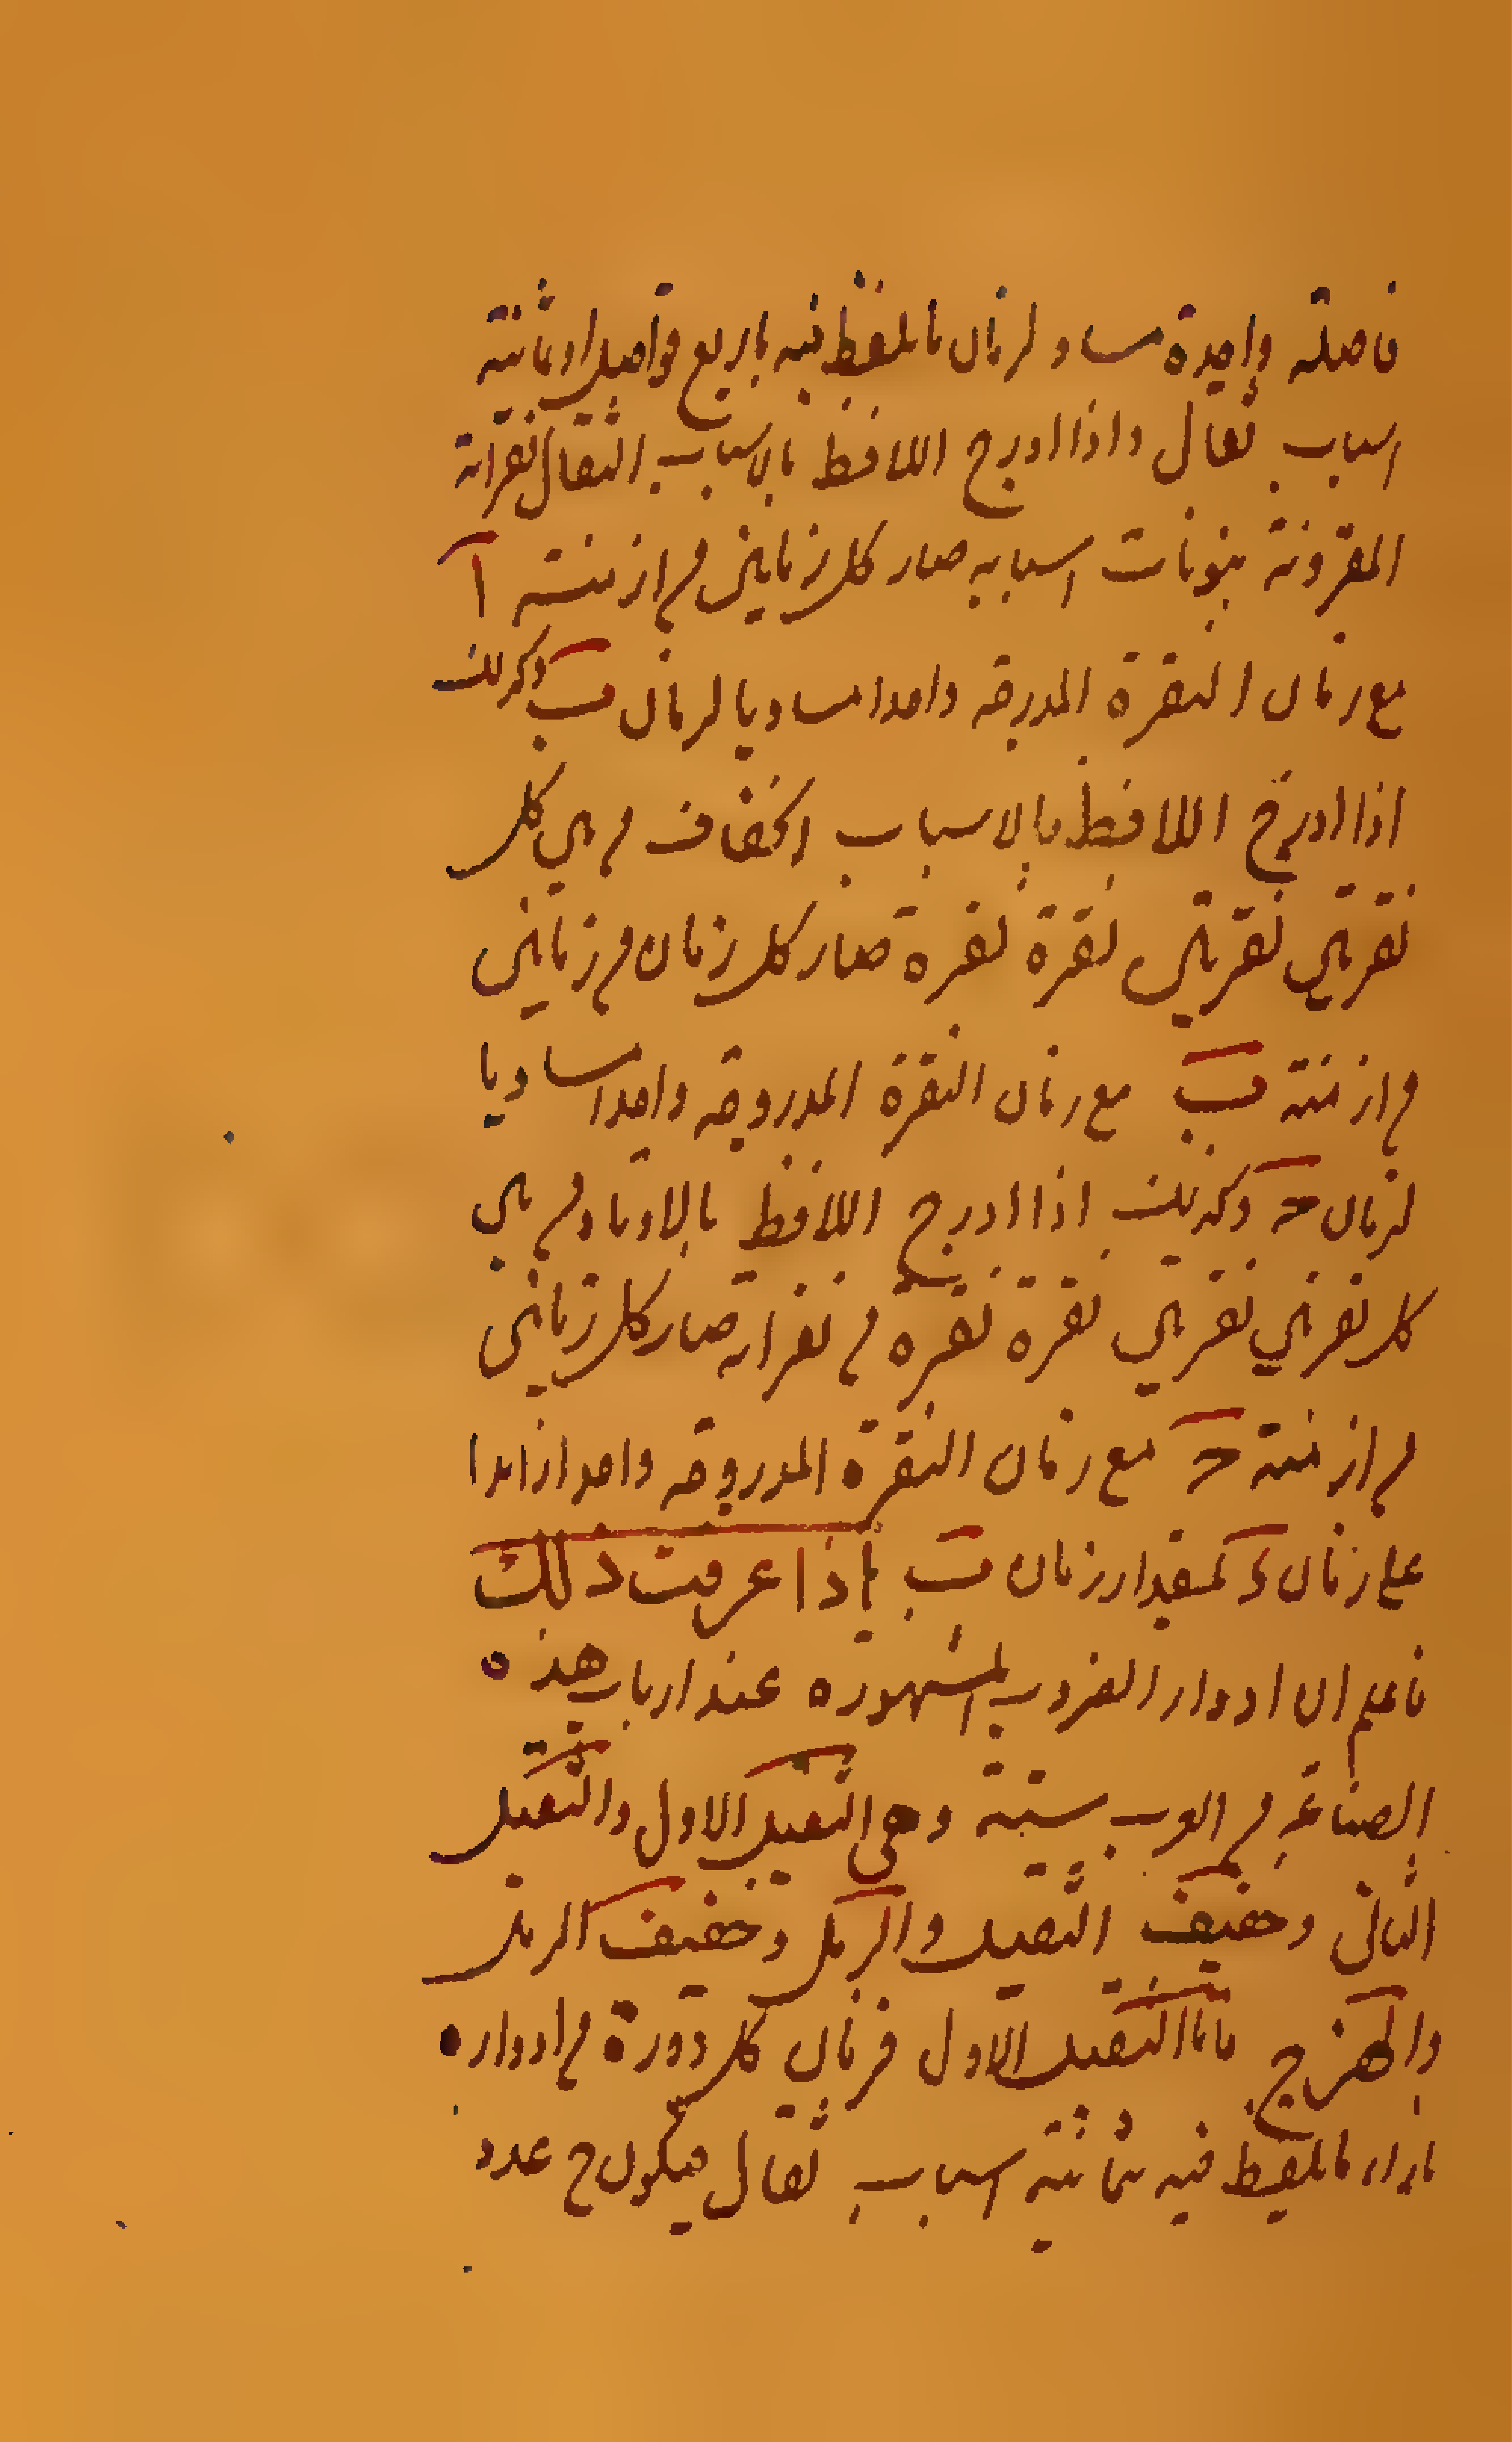 فاصلة واحدة مساو لزمان ما يلفظ فيه باربع فواصل او ثمانية
اسباب ثقال واذا ادرج اللافظ بالاسباب الثقال نقراته
المقرونة بنونات اسبابه صار كل زمانين من ازمنة آ
مع زمان النقرة المدرجة واحدا مساويا لزمان ب وكذلك
اذا ادرج اللافظ بالاسباب الخفاف من بين كل
نقرتين نقرتين نقرة نقرة صار كل زمان من زمانين
من ازمنة ب مع زمان النقرة المدروجة واحدا مساويا
لزمان ح وكذلك اذا ادرج اللافظ بالاوتاد من بين
كل نقرتين نقرتين نقرة نقرة من نقراته صار كل زمانين
من ازمنة ح مع زمان النقرة المدروجة واحدا زائدا
على زمان د بمقدار زمان ب اذا عرفت ذلك
فاعلم ان ادوار الضروب المشهورة عند ارباب هذه
الصناعة من العرب ستة وهي الثقيل الاول والثقيل
الثاني وخفيف الثقيل والرمل وخفيف الرمل
والهزج فاما الثقيل الاول فزمان كل دورة من ادواره
بازاء ما يلفظ فيه ثمانية اسباب ثقال فيكون ح عدد